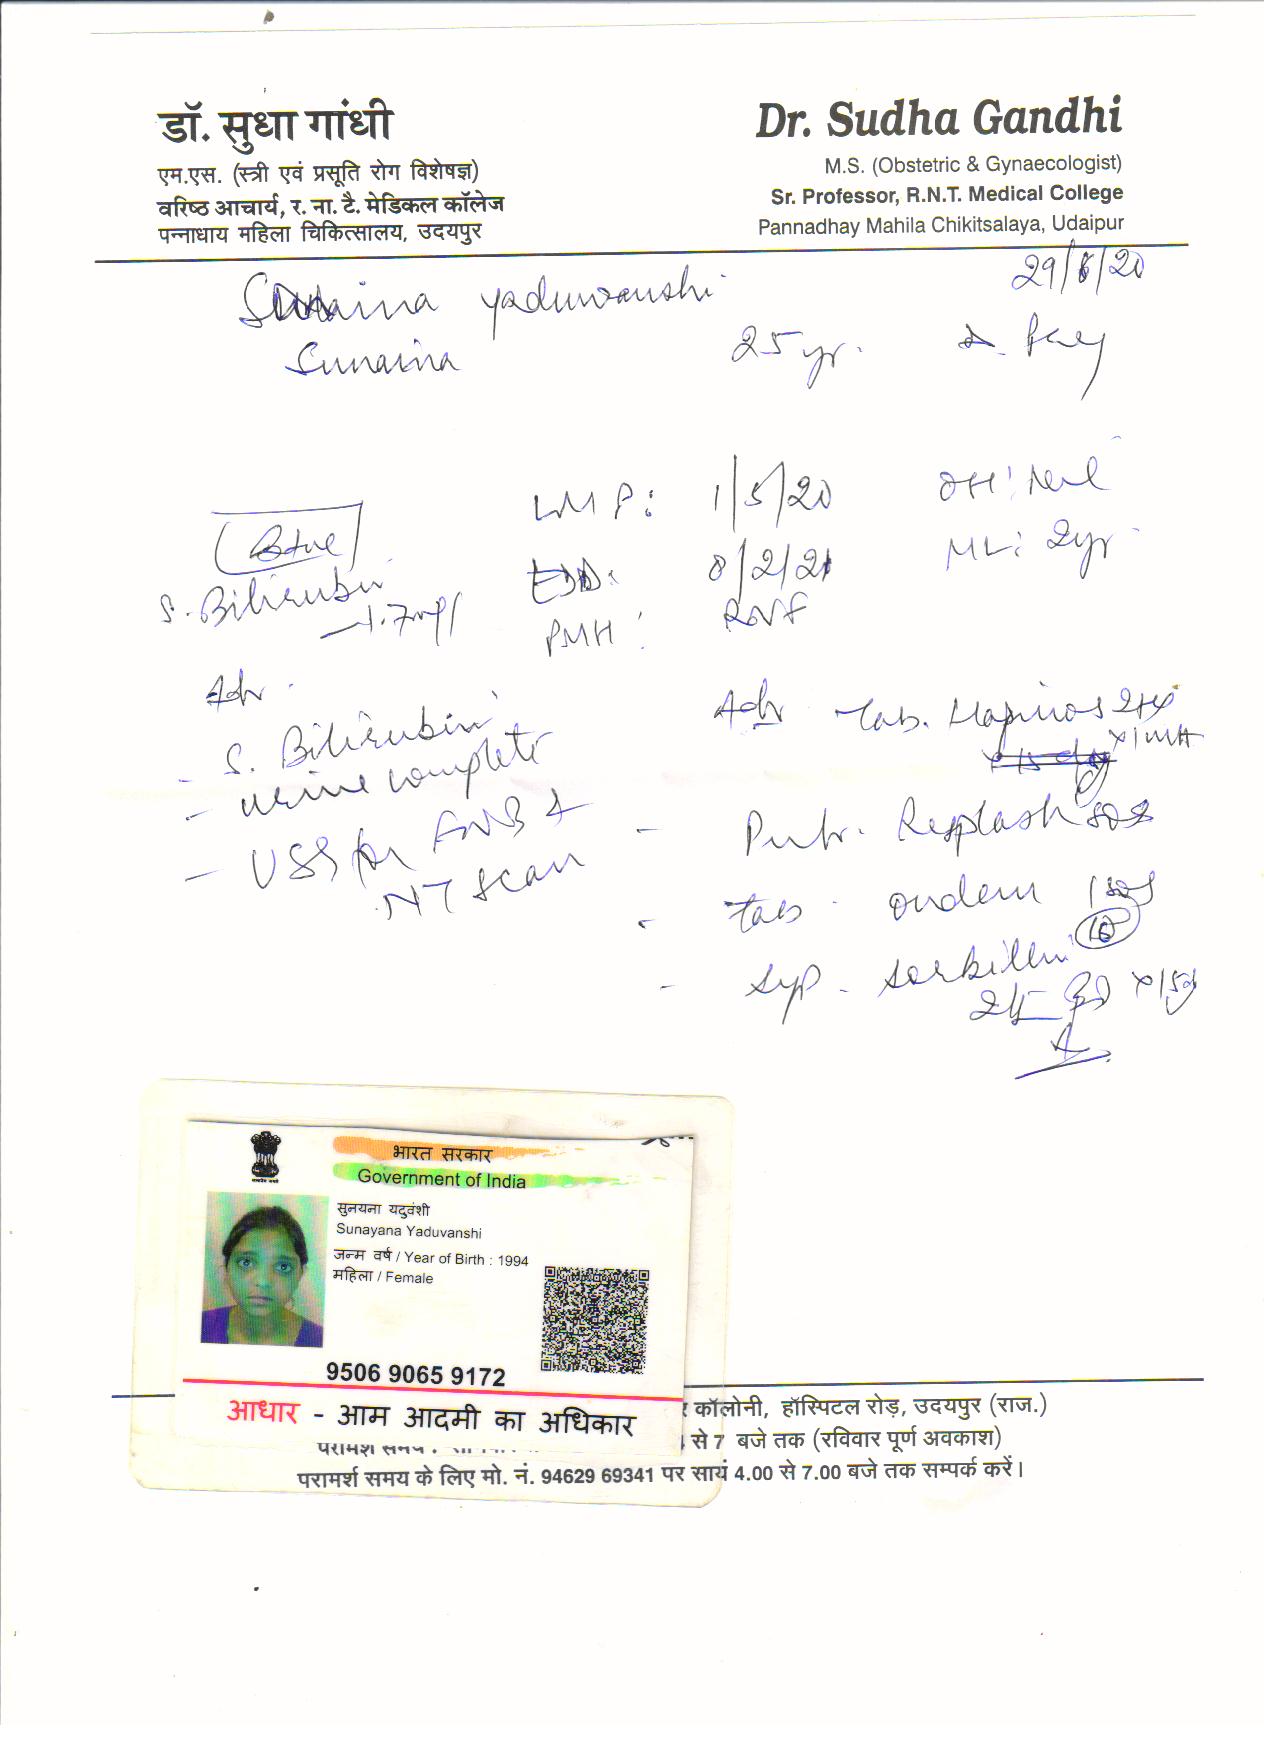 डॉ. सुधा गांधी
एम.एस. (स्त्री एवं प्रसूति रोग विशेषज्ञ)
वरिष्ठ आचार्य, र. ना. टै. मेडिकल कॉलेज
पन्नाधाय महिला चिकित्सालय, उदयपुर
Dr. Sudha Gandhi
M.S. (Obstetric & Gynaecologist)
Sr. Professor, R.N.T. Medical College
Pannadhay Mahila Chikitsalaya, Udaipur
29/6/20
Sunaina yaduvanshi
Sunaina
25 yr.
LMP: 1/5/20
OH: Nil
EDD: 8/2/21
ML: 2yr
PMH:
B+ve
S. Bilirubin
Adv
- S. Bilirubin
- urine complete
- USG for FNB &
NT scan
Adv Tab.
- Tab. Ondem
- Syp.
भारत सरकार
Government of India
सुनयना यदुवंशी
Sunayana Yaduvanshi
जन्म वर्ष / Year of Birth : 1994
महिला / Female
9506 9065 9172
आधार - आम आदमी का अधिकार
कॉलोनी, हॉस्पिटल रोड़, उदयपुर (राज.)
से 7 बजे तक (रविवार पूर्ण अवकाश)
परामर्श समय के लिए मो. नं. 94629 69341 पर सायं 4.00 से 7.00 बजे तक सम्पर्क करें।